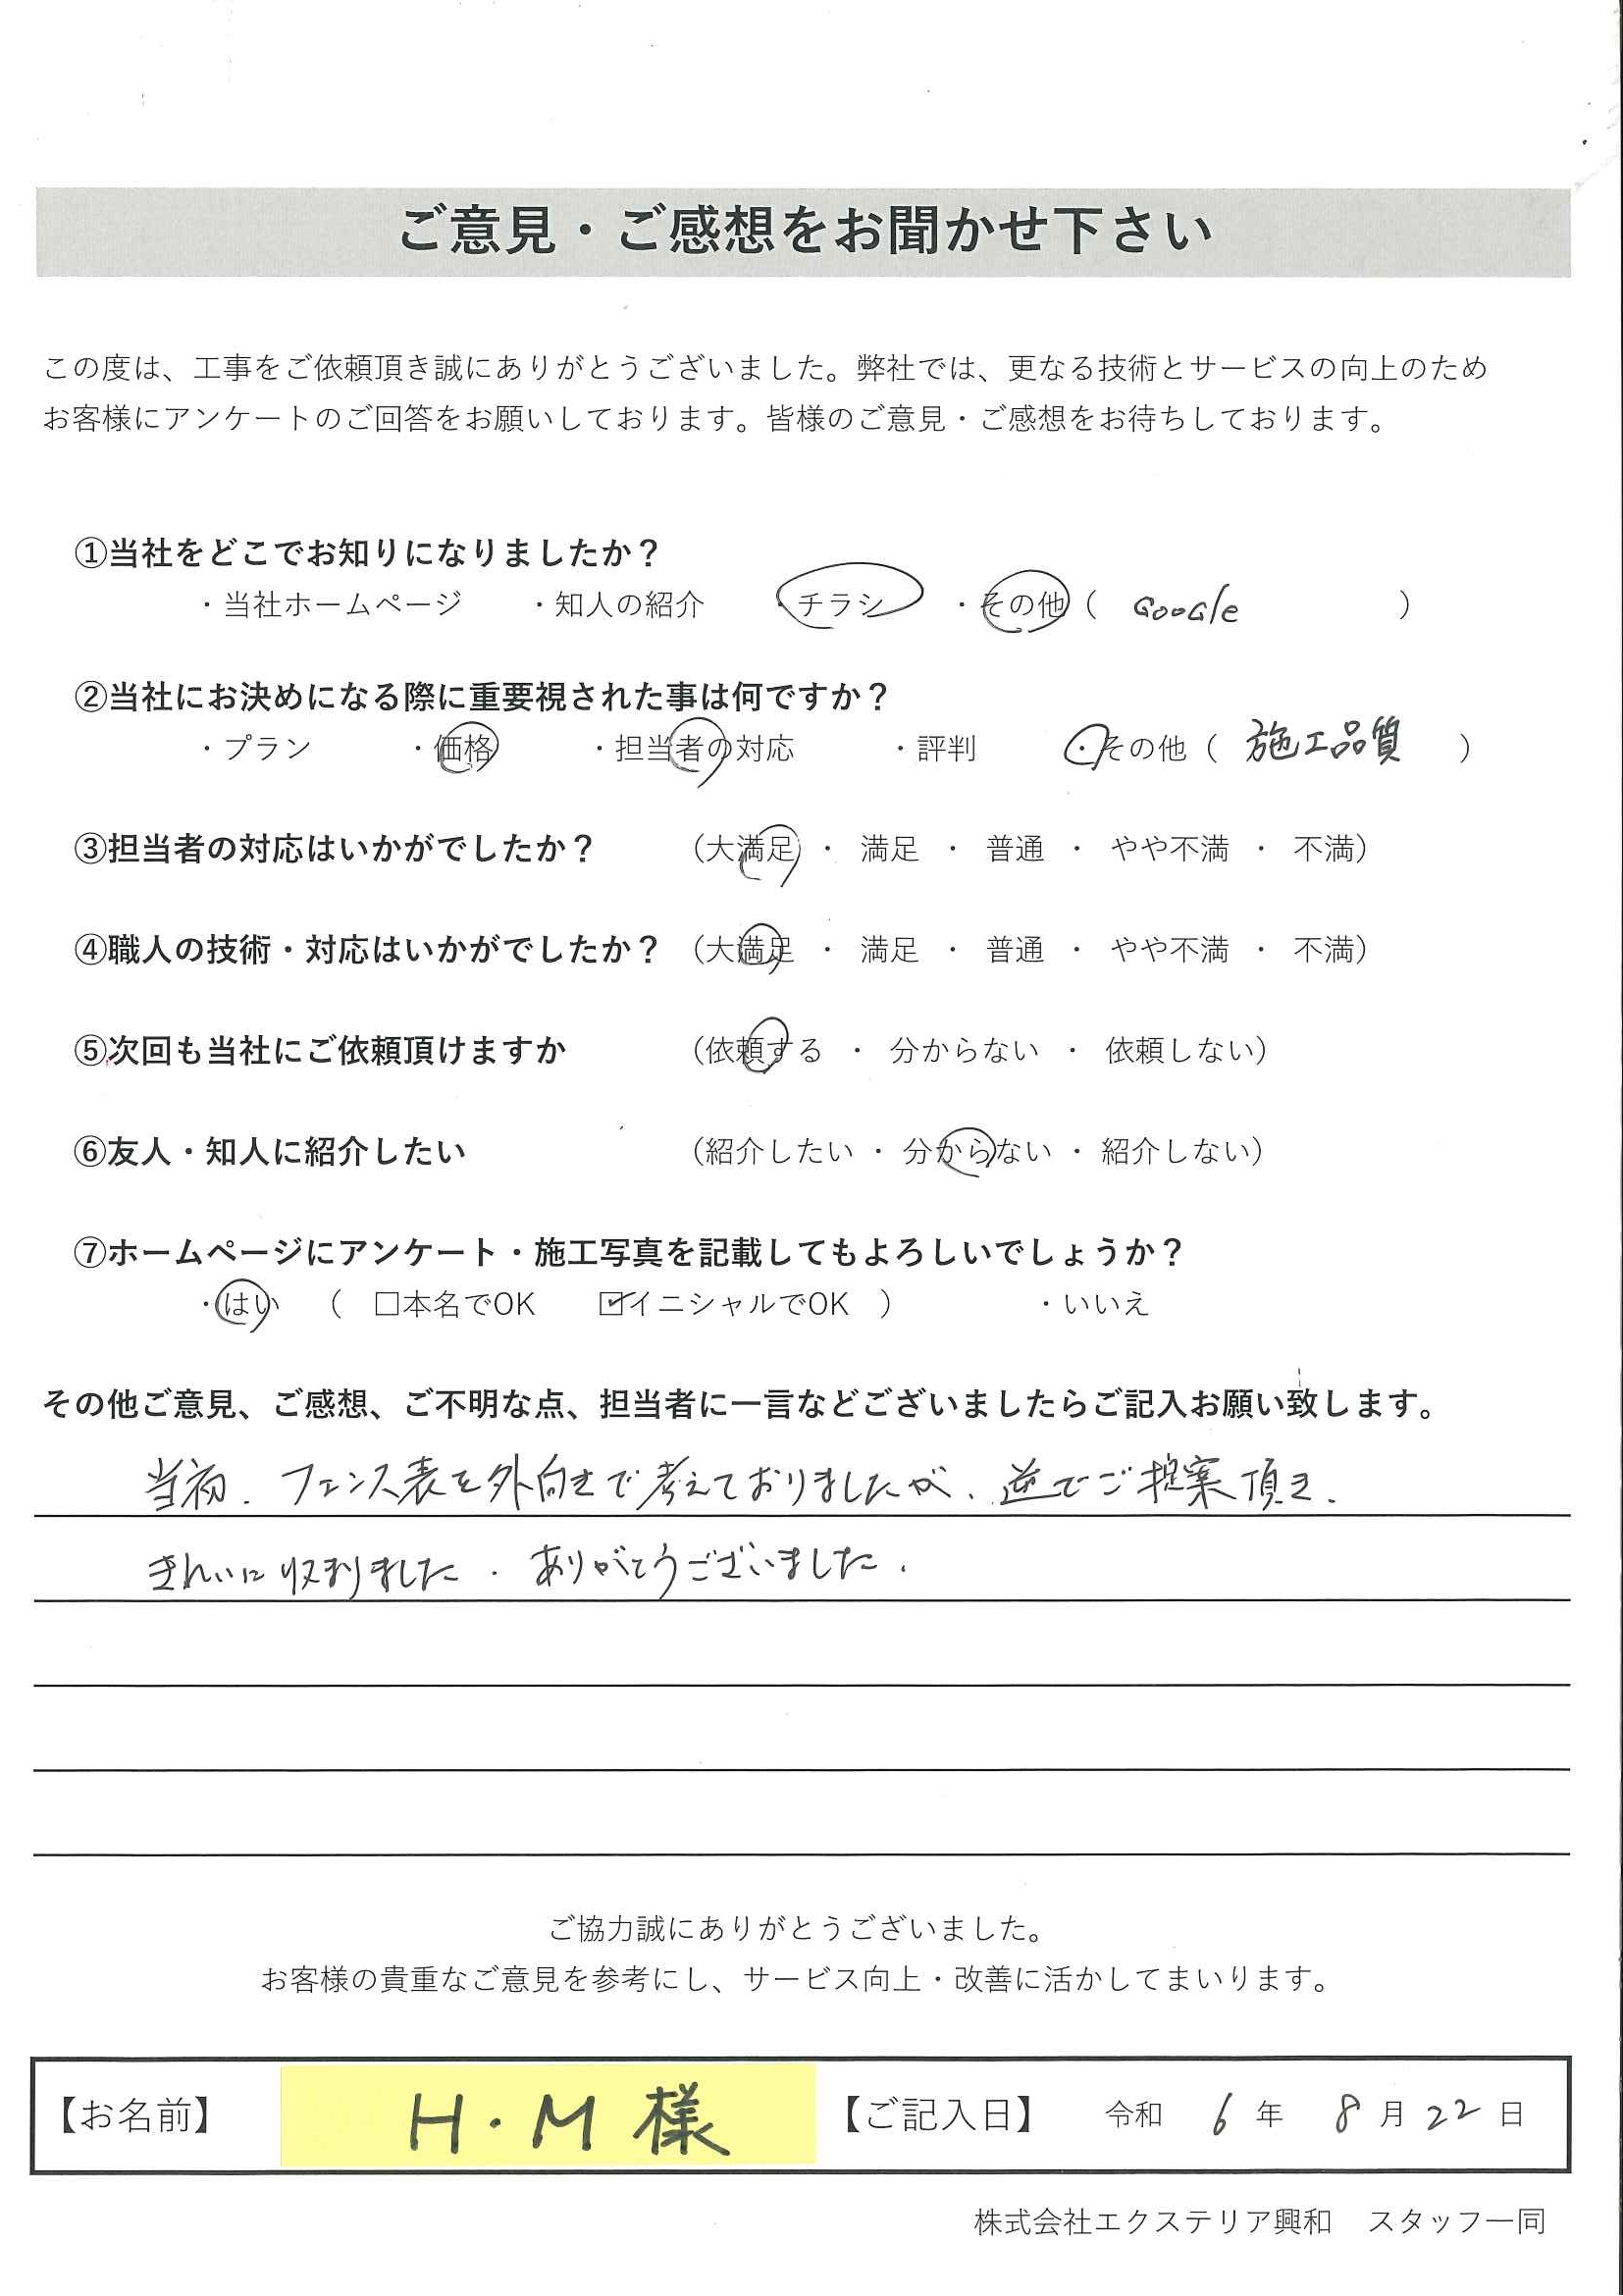 ご意見・ご感想をお聞かせ下さい
この度は、工事をご依頼頂き誠にありがとうございました。弊社では、更なる技術とサービスの向上のため
お客様にアンケートのご回答をお願いしております。皆様のご意見・ご感想をお待ちしております。
①当社をどこでお知りになりましたか？
・当社ホームページ ・知人の紹介 ・チラシ ・その他（ Google ）
②当社にお決めになる際に重要視された事は何ですか？
・プラン ・価格 ・担当者の対応 ・評判 ・その他（ 施工品質 ）
③担当者の対応はいかがでしたか？ （大満足 ・ 満足 ・ 普通 ・ やや不満 ・ 不満）
④職人の技術・対応はいかがでしたか？ （大満足 ・ 満足 ・ 普通 ・ やや不満 ・ 不満）
⑤次回も当社にご依頼頂けますか （依頼する ・ 分からない ・ 依頼しない）
⑥友人・知人に紹介したい （紹介したい ・ 分からない ・ 紹介しない）
⑦ホームページにアンケート・施工写真を記載してもよろしいでしょうか？
・はい （ □本名でOK ☑イニシャルでOK ） ・いいえ
その他ご意見、ご感想、ご不明な点、担当者に一言などございましたらご記入お願い致します。
当初、フェンス表を外向きで考えておりましたが、逆でご提案頂き、
きれいに収まりました。ありがとうございました。
ご協力誠にありがとうございました。
お客様の貴重なご意見を参考にし、サービス向上・改善に活かしてまいります。
【お名前】 H・M 様 【ご記入日】 令和 6 年 8 月 22 日
株式会社エクステリア興和 スタッフ一同